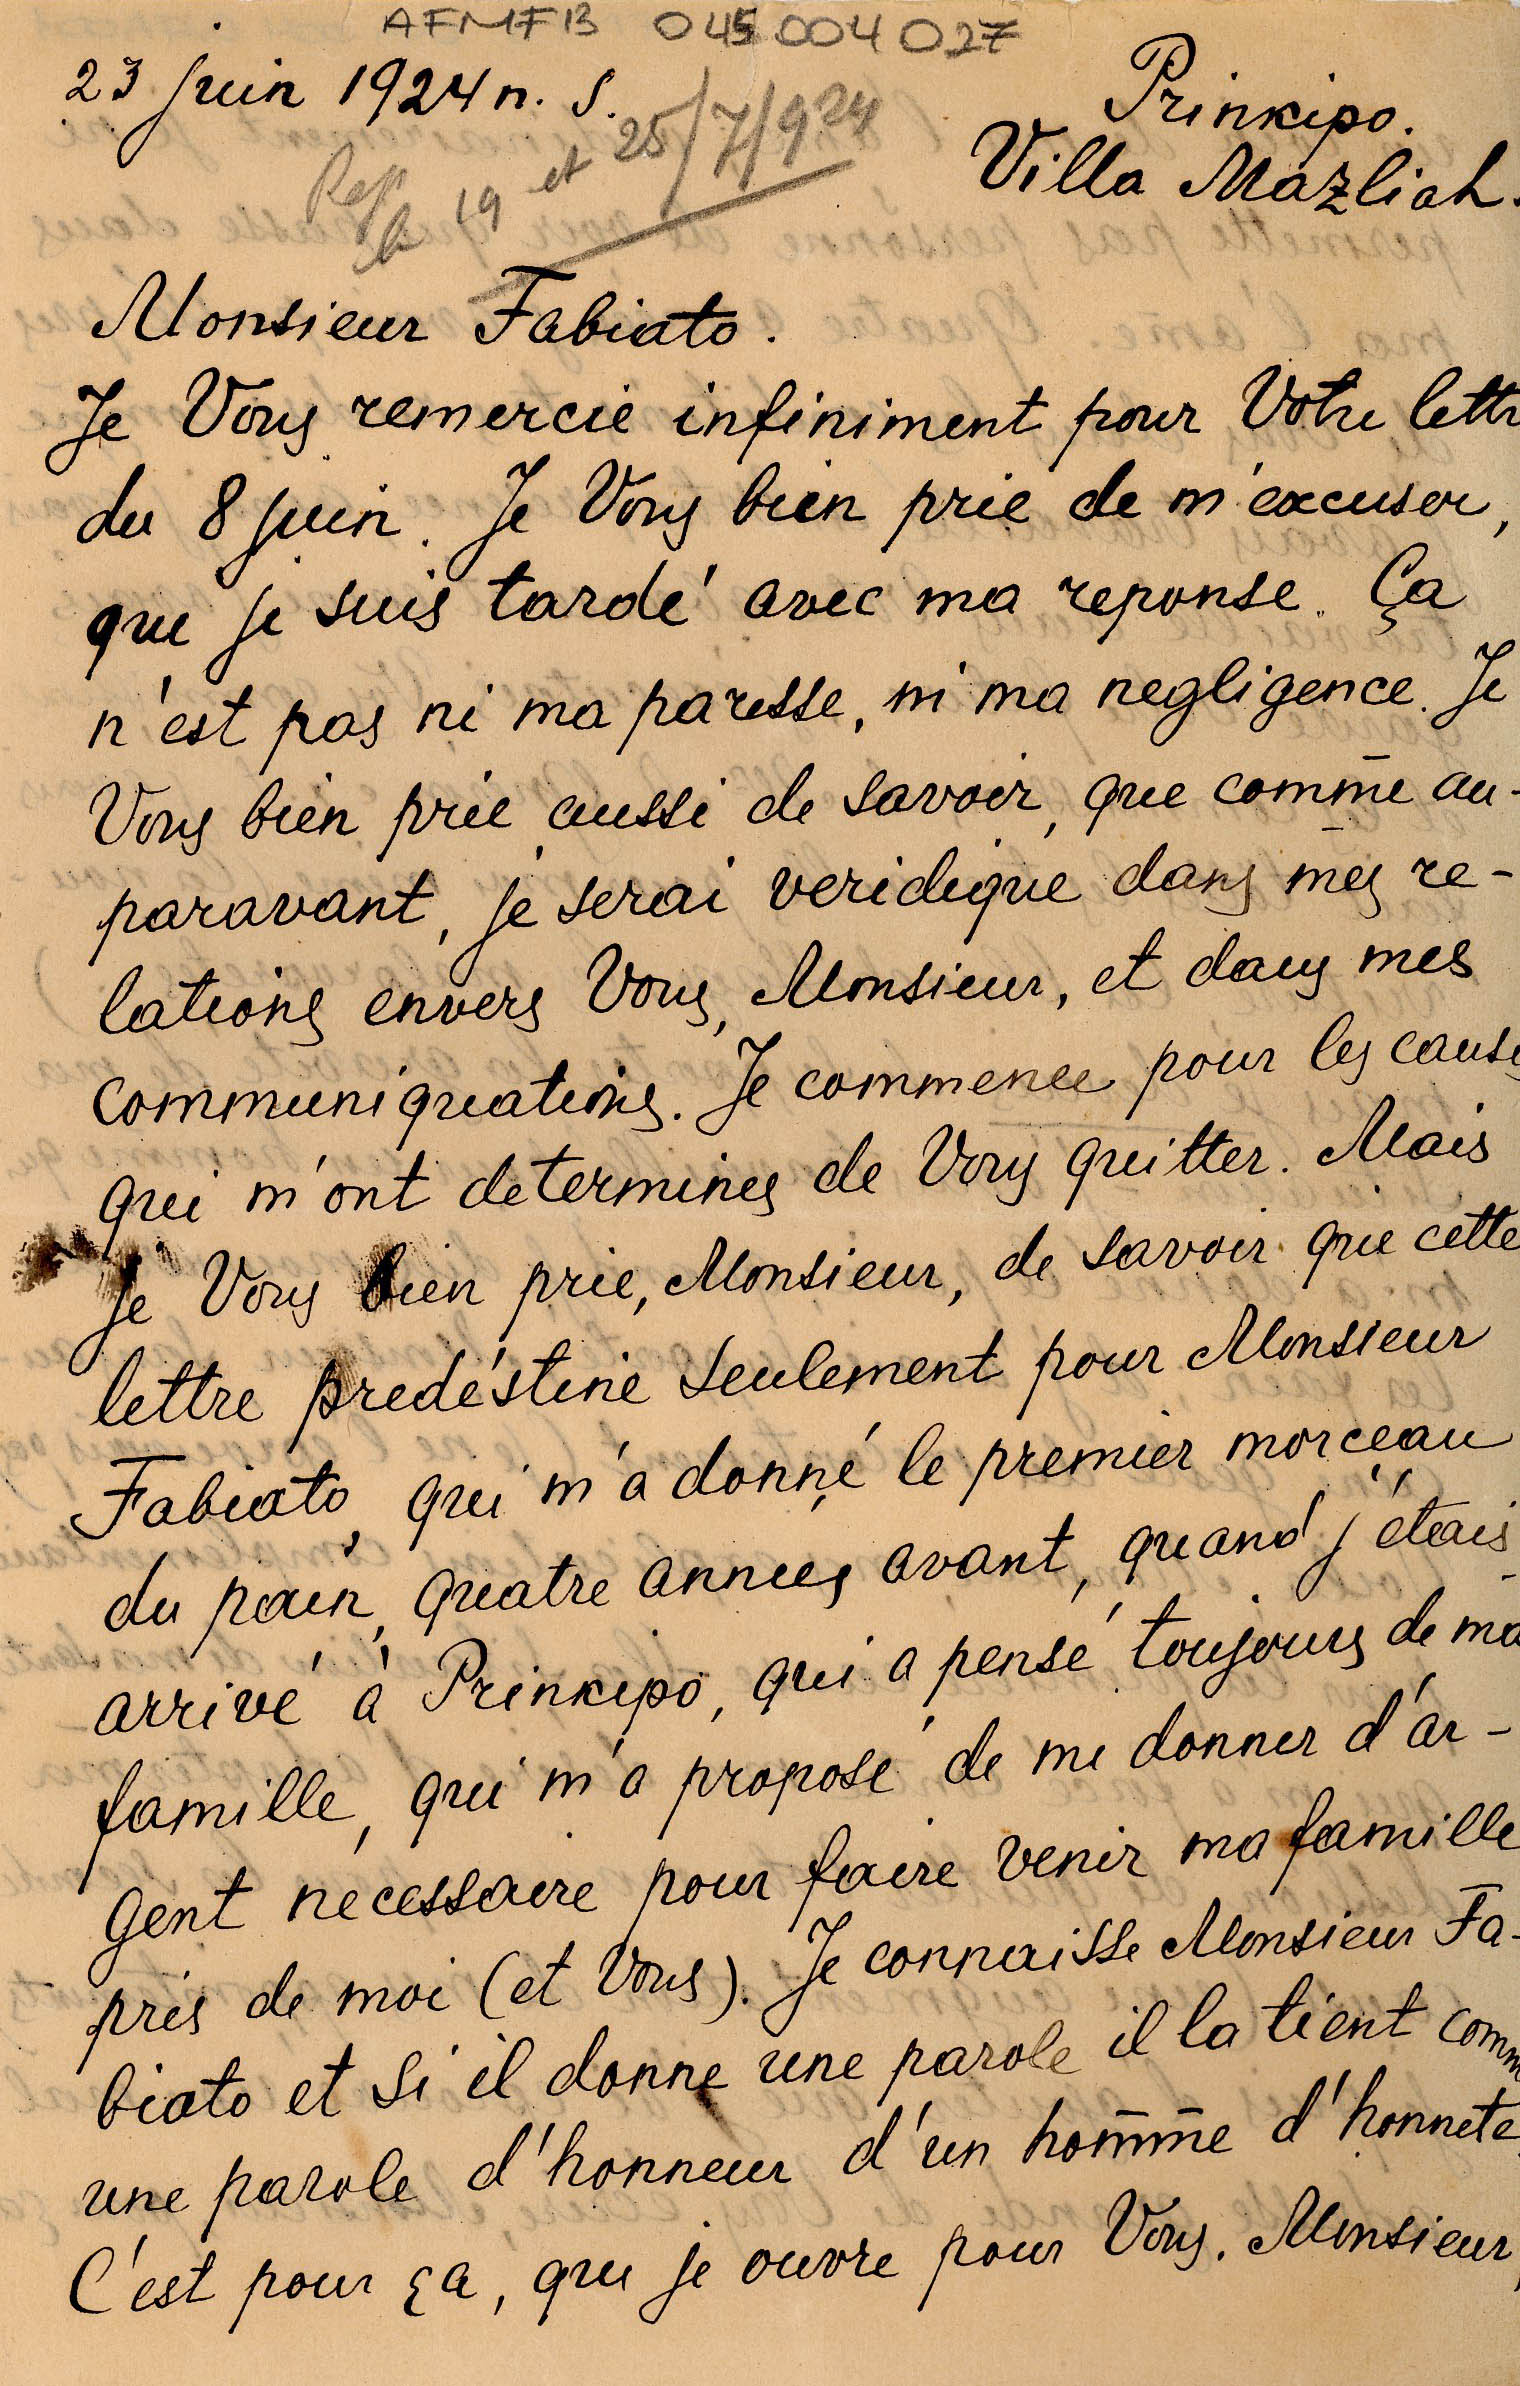 AFMFB 045 004 027
23 juin 1924 n. s.
Rep le 19 et 25/7/924
Prinkipo.
Villa Mazliah.
Monsieur Fabiato.
Je Vous remercie infiniment pour Votre lettr
du 8 juin. Je Vous bien prie de m'excuser,
que je suis tardé avec ma reponse. Ça
n'est pas ni ma paresse, ni ma negligence. Je
Vous bien prie aussi de savoir, que comme au-
paravant, je serai veridique dans mes re-
lations envers Vous, Monsieur, et dans mes
communiquations. Je commence pour les causes
qui m'ont determines de Vous quitter. Mais
je Vous bien prie, Monsieur, de savoir que cette
lettre predéstine seulement pour Monsieur
Fabiato, qui m'a donné le premier morceau
du pain, quatre annees avant, quand j'étais
arrivé à Prinkipo, qui a pensé toujours de ma
famille, qui m'a proposé de me donner d'ar-
gent necessaire pour faire venir ma famille
près de moi (et Vous). Je connaisse Monsieur Fa-
biato et si il donne une parole il la tient comm
une parole d'honneur d'un homme d'honnete.
C'est pour ça, que je ouvre pour Vous, Monsieur,